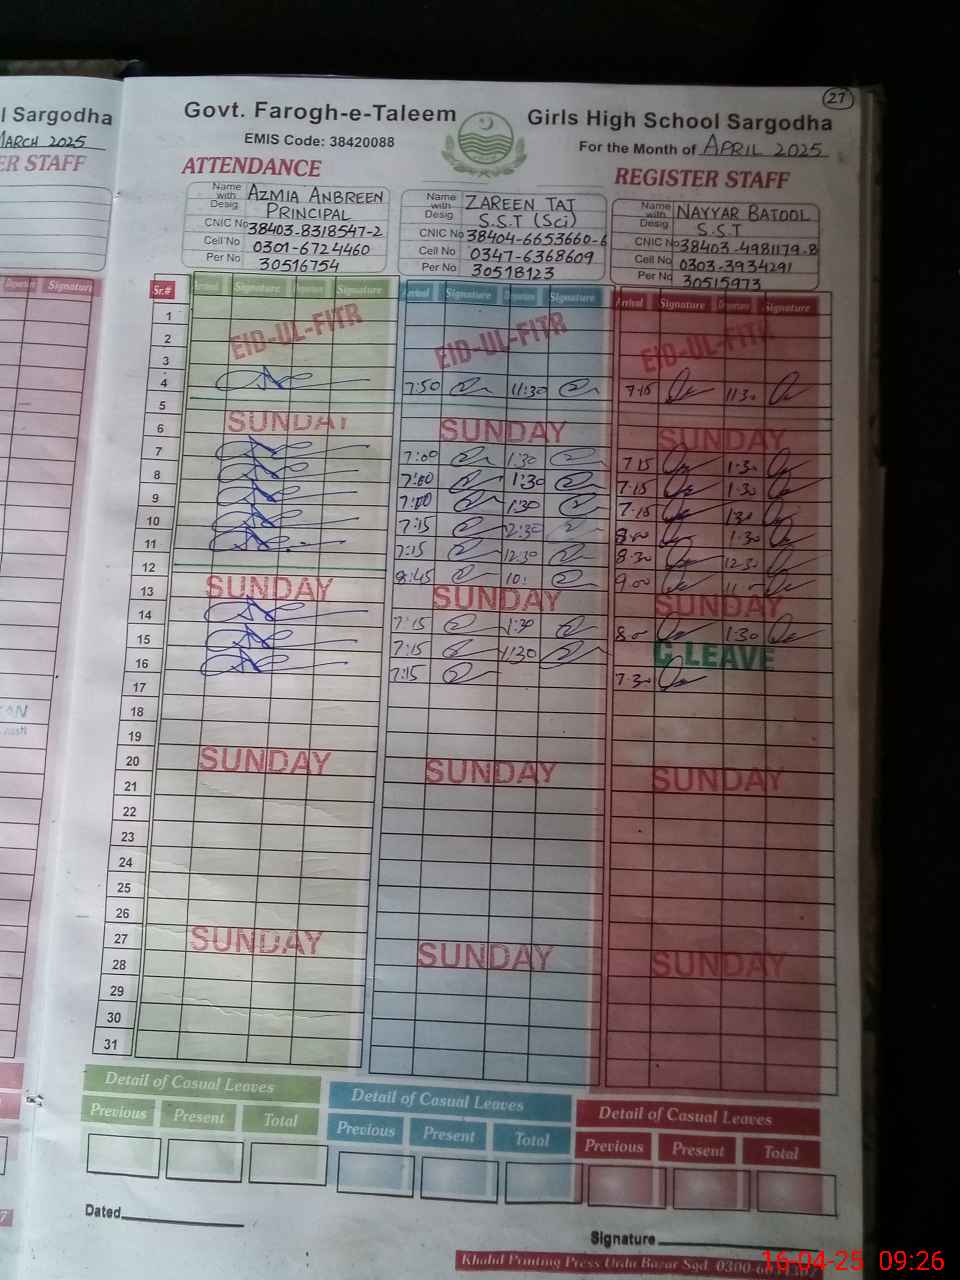 l Sargodha
MARCH 2025
ER STAFF
27
Govt. Farogh-e-Taleem Girls High School Sargodha
EMIS Code: 38420088
For the Month of APRIL 2025
ATTENDANCE REGISTER STAFF
Name with Desig AZMIA ANBREEN PRINCIPAL
CNIC No 38403-8318547-2
Cell No 0301-6724460
Per No 30516754
Name with Desig ZAREEN TAJ S.S.T (Sci)
CNIC No 38404-6653660-6
Cell No 0347-6368609
Per No 30518123
Name with Desig NAYYAR BATOOL S.S.T
CNIC No 38403-4981179-8
Cell No 0303-3934291
Per No 30515973
Departure Signature
Sr.# Arrival Signature Departure Signature Arrival Signature Departure Signature Arrival Signature Departure Signature
1
2 EID-UL-FITR EID-UL-FITR EID-UL-FITR
3
4 7:50 11:30 7:15 11:30
5
6 SUNDAY SUNDAY SUNDAY
7 7:00 1:30 7:15 1:30
8 7:00 1:30 7:15 1:30
9 7:00 1:30 7:15 1:30
10 7:15 12:30 8:00 1:30
11 7:15 12:30 8:30 12:30
12 8:45 10: 9:00
13 SUNDAY SUNDAY SUNDAY
14 7:15 1:30 8:00 1:30
15 7:15 1:30 C LEAVE
16 7:15 7:30
17
18
19
20 SUNDAY SUNDAY SUNDAY
21
22
23
24
25
26
27 SUNDAY SUNDAY SUNDAY
28
29
30
31
Detail of Casual Leaves Detail of Casual Leaves Detail of Casual Leaves
Previous Present Total Previous Present Total Previous Present Total
Dated
Signature
Khalid Printing Press Urdu Bazar Sgd. 0300-60
16-04-25 09:26